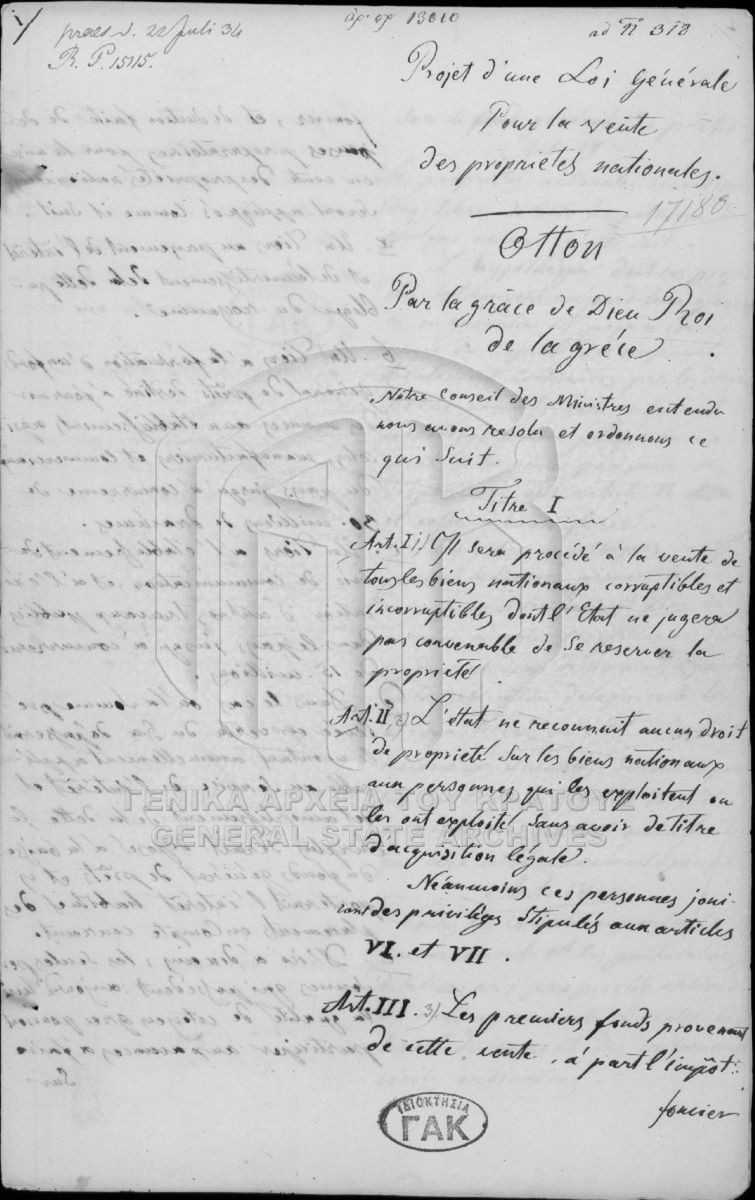 1/
praes. d. 22 Juli 34
R. P. 15115.
ἀρ. πρ 13010
ad N 318
Projet d'une Loi Générale
Pour la vente
des proprietés nationales.
17180
Otton
Par la grâce de Dieu Roi
de la gréce.
Notre Conseil des Ministres entendu
nous avons resolu et ordonnons ce
qui Suit.
Titre I
Art. I 1) Il sera procédé à la vente de
tous les biens nationaux corruptibles et
incorruptibles dont l'Etat ne jugera
pas convenable de Se reserver la
proprieté
Art. II 2) L'état ne reconnait aucun droit
de proprieté Sur les biens nationaux
aux personnes qui les exploitent ou
les ont exploité Sans avoir de titre
d'acquisition légale.
Néanmoins ces personnes joui-
ront des priviléges Stipulés aux articles
VI. et VII.
Art. III. 3) Les premiers fonds provenant
de cette vente, à part l'impôt
foncier
ΓΕΝΙΚΑ ΑΡΧΕΙΑ ΤΟΥ ΚΡΑΤΟΥΣ
GENERAL STATE ARCHIVES
ΙΔΙΟΚΤΗΣΙΑ
ΓΑΚ